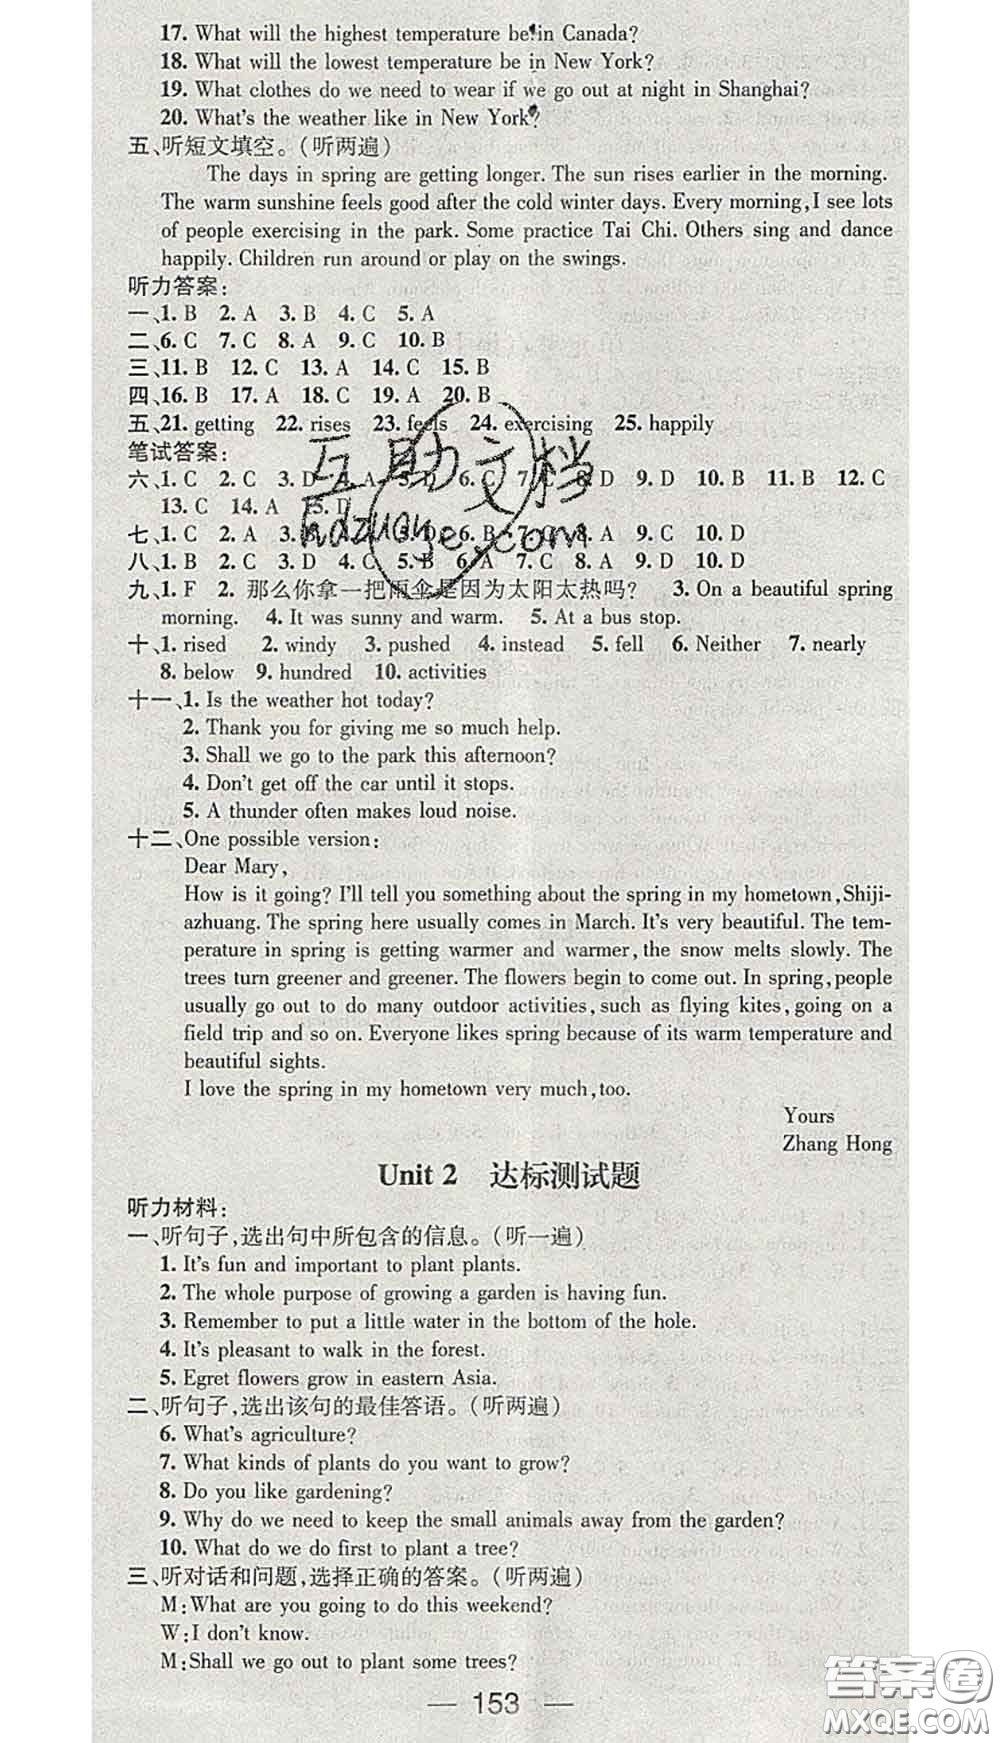 17. What will the highest temperature be in Canada?
18. What will the lowest temperature be in New York?
19. What clothes do we need to wear if we go out at night in Shanghai?
20. What's the weather like in New York?
五、听短文填空。(听两遍)
The days in spring are getting longer. The sun rises earlier in the morning.
The warm sunshine feels good after the cold winter days. Every morning, I see lots
of people exercising in the park. Some practice Tai Chi. Others sing and dance
happily. Children run around or play on the swings.
听力答案:
一、1. B 2. A 3. B 4. C 5. A
二、6. C 7. C 8. A 9. C 10. B
三、11. B 12. C 13. A 14. C 15. B
四、16. B 17. A 18. C 19. A 20. B
五、21. getting 22. rises 23. feels 24. exercising 25. happily
笔试答案:
六、1. C 2. C 3. D 4. A 5. D 6. C 7. C 8. D 9. D 10. B 11. B 12. C
13. C 14. A 15. D
七、1. C 2. A 3. B 5. D 6. B 7. C 8. A 9. C 10. D
八、1. B 2. C 3. D 4. C 5. B 6. A 7. C 8. A 9. D 10. D
九、1. F 2. 那么你拿一把雨伞是因为太阳太热吗? 3. On a beautiful spring
morning. 4. It was sunny and warm. 5. At a bus stop.
十、1. rised 2. windy 3. pushed 4. instead 5. fell 6. Neither 7. nearly
8. below 9. hundred 10. activities
十一、1. Is the weather hot today?
2. Thank you for giving me so much help.
3. Shall we go to the park this afternoon?
4. Don't get off the car until it stops.
5. A thunder often makes loud noise.
十二、One possible version:
Dear Mary,
How is it going? I'll tell you something about the spring in my hometown, Shiji-
azhuang. The spring here usually comes in March. It's very beautiful. The tem-
perature in spring is getting warmer and warmer, the snow melts slowly. The
trees turn greener and greener. The flowers begin to come out. In spring, people
usually go out to do many outdoor activities, such as flying kites, going on a
field trip and so on. Everyone likes spring because of its warm temperature and
beautiful sights.
I love the spring in my hometown very much, too.
Yours
Zhang Hong
Unit 2 达标测试题
听力材料:
一、听句子,选出句中所包含的信息。(听一遍)
1. It's fun and important to plant plants.
2. The whole purpose of growing a garden is having fun.
3. Remember to put a little water in the bottom of the hole.
4. It's pleasant to walk in the forest.
5. Egret flowers grow in eastern Asia.
二、听句子,选出该句的最佳答语。(听两遍)
6. What's agriculture?
7. What kinds of plants do you want to grow?
8. Do you like gardening?
9. Why do we need to keep the small animals away from the garden?
10. What do we do first to plant a tree?
三、听对话和问题,选择正确的答案。(听两遍)
M: What are you going to do this weekend?
W: I don't know.
M: Shall we go out to plant some trees?
— 153 —
互助文档
hdzuoye.com
答案圈
MXQE.COM